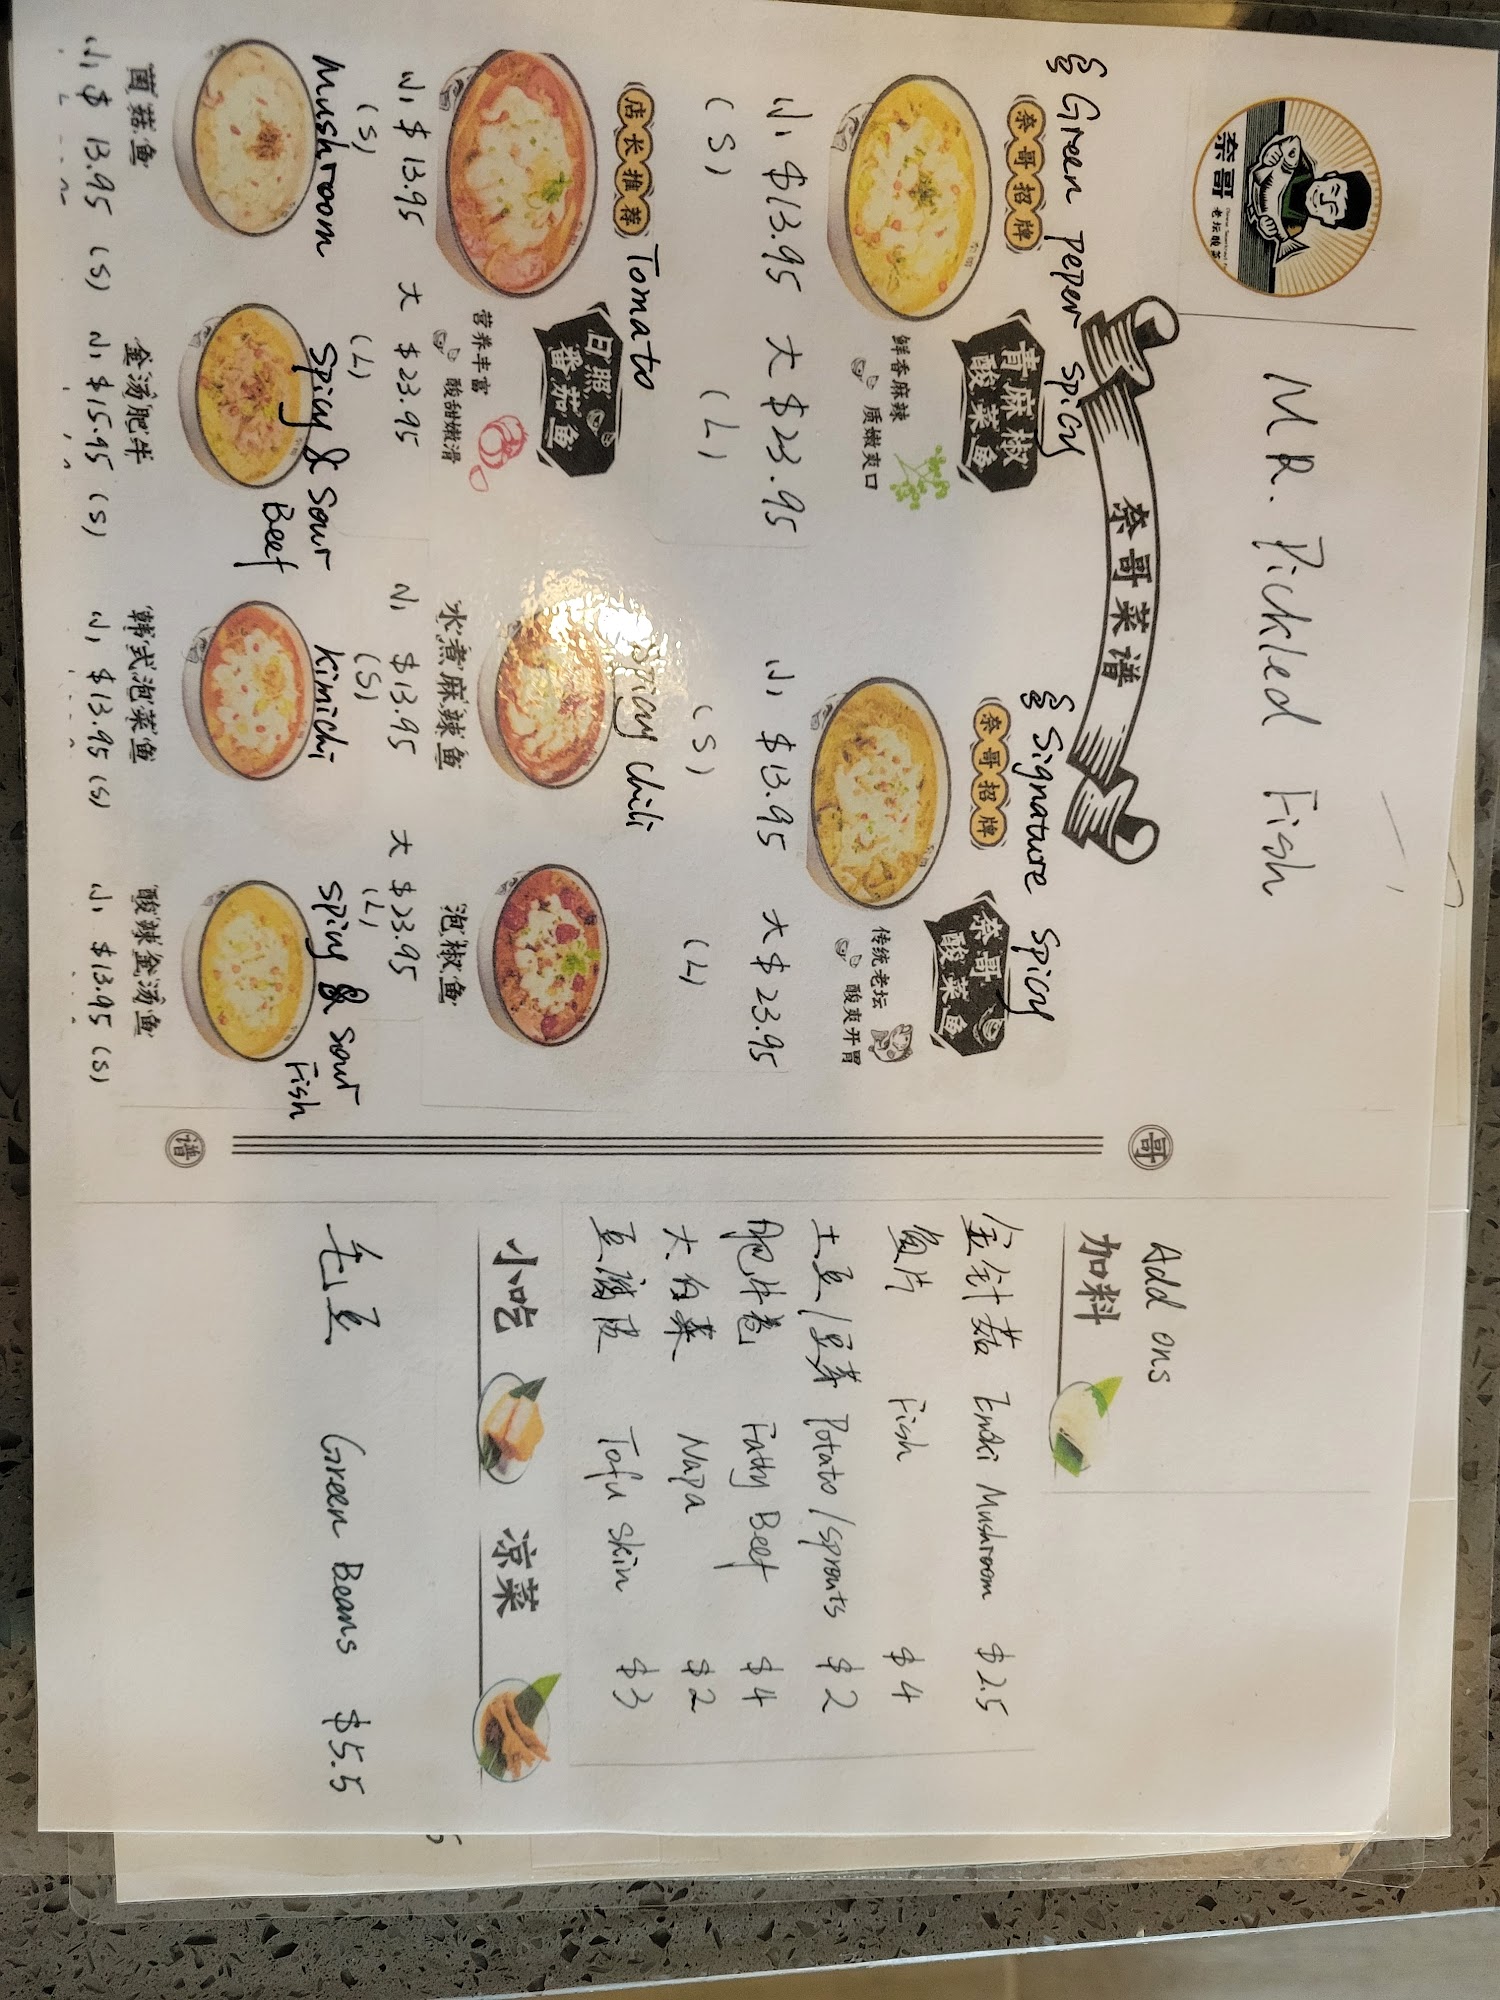 奈哥
老坛酸菜
MR. Pickled Fish
奈哥菜谱
Green peper spicy
奈哥招牌
青麻椒
酸菜鱼
鲜香麻辣
质嫩爽口
小 $13.95 大 $23.95
(S) (L)
Signature spicy
奈哥招牌
奈哥
酸菜鱼
传统老坛
酸爽开胃
小 $13.95 大 $23.95
(S) (L)
店长推荐
Tomato
日照
番茄鱼
营养丰富
酸甜嫩滑
小 $13.95 大 $23.95
(S) (L)
spicy chili
水煮麻辣鱼
泡椒鱼
小 $13.95 大 $23.95
(S) (L)
Mushroom
菌菇鱼
小 $ 13.95 (S)
spicy & sour
Beef
金汤肥牛
小 $15.95 (S)
kimichi
韩式泡菜鱼
小 $13.95 (S)
spicy & sour
Fish
酸辣金汤鱼
小 $13.95 (S)
哥
谱
Add ons
加料
金针菇 Enoki Mushroom $2.5
鱼片 Fish $4
土豆/豆芽 Potato/sprouts $2
肥牛卷 Fatty Beef $4
大白菜 Napa $2
豆腐皮 Tofu skin $3
小吃
凉菜
毛豆 Green Beans $5.5
5